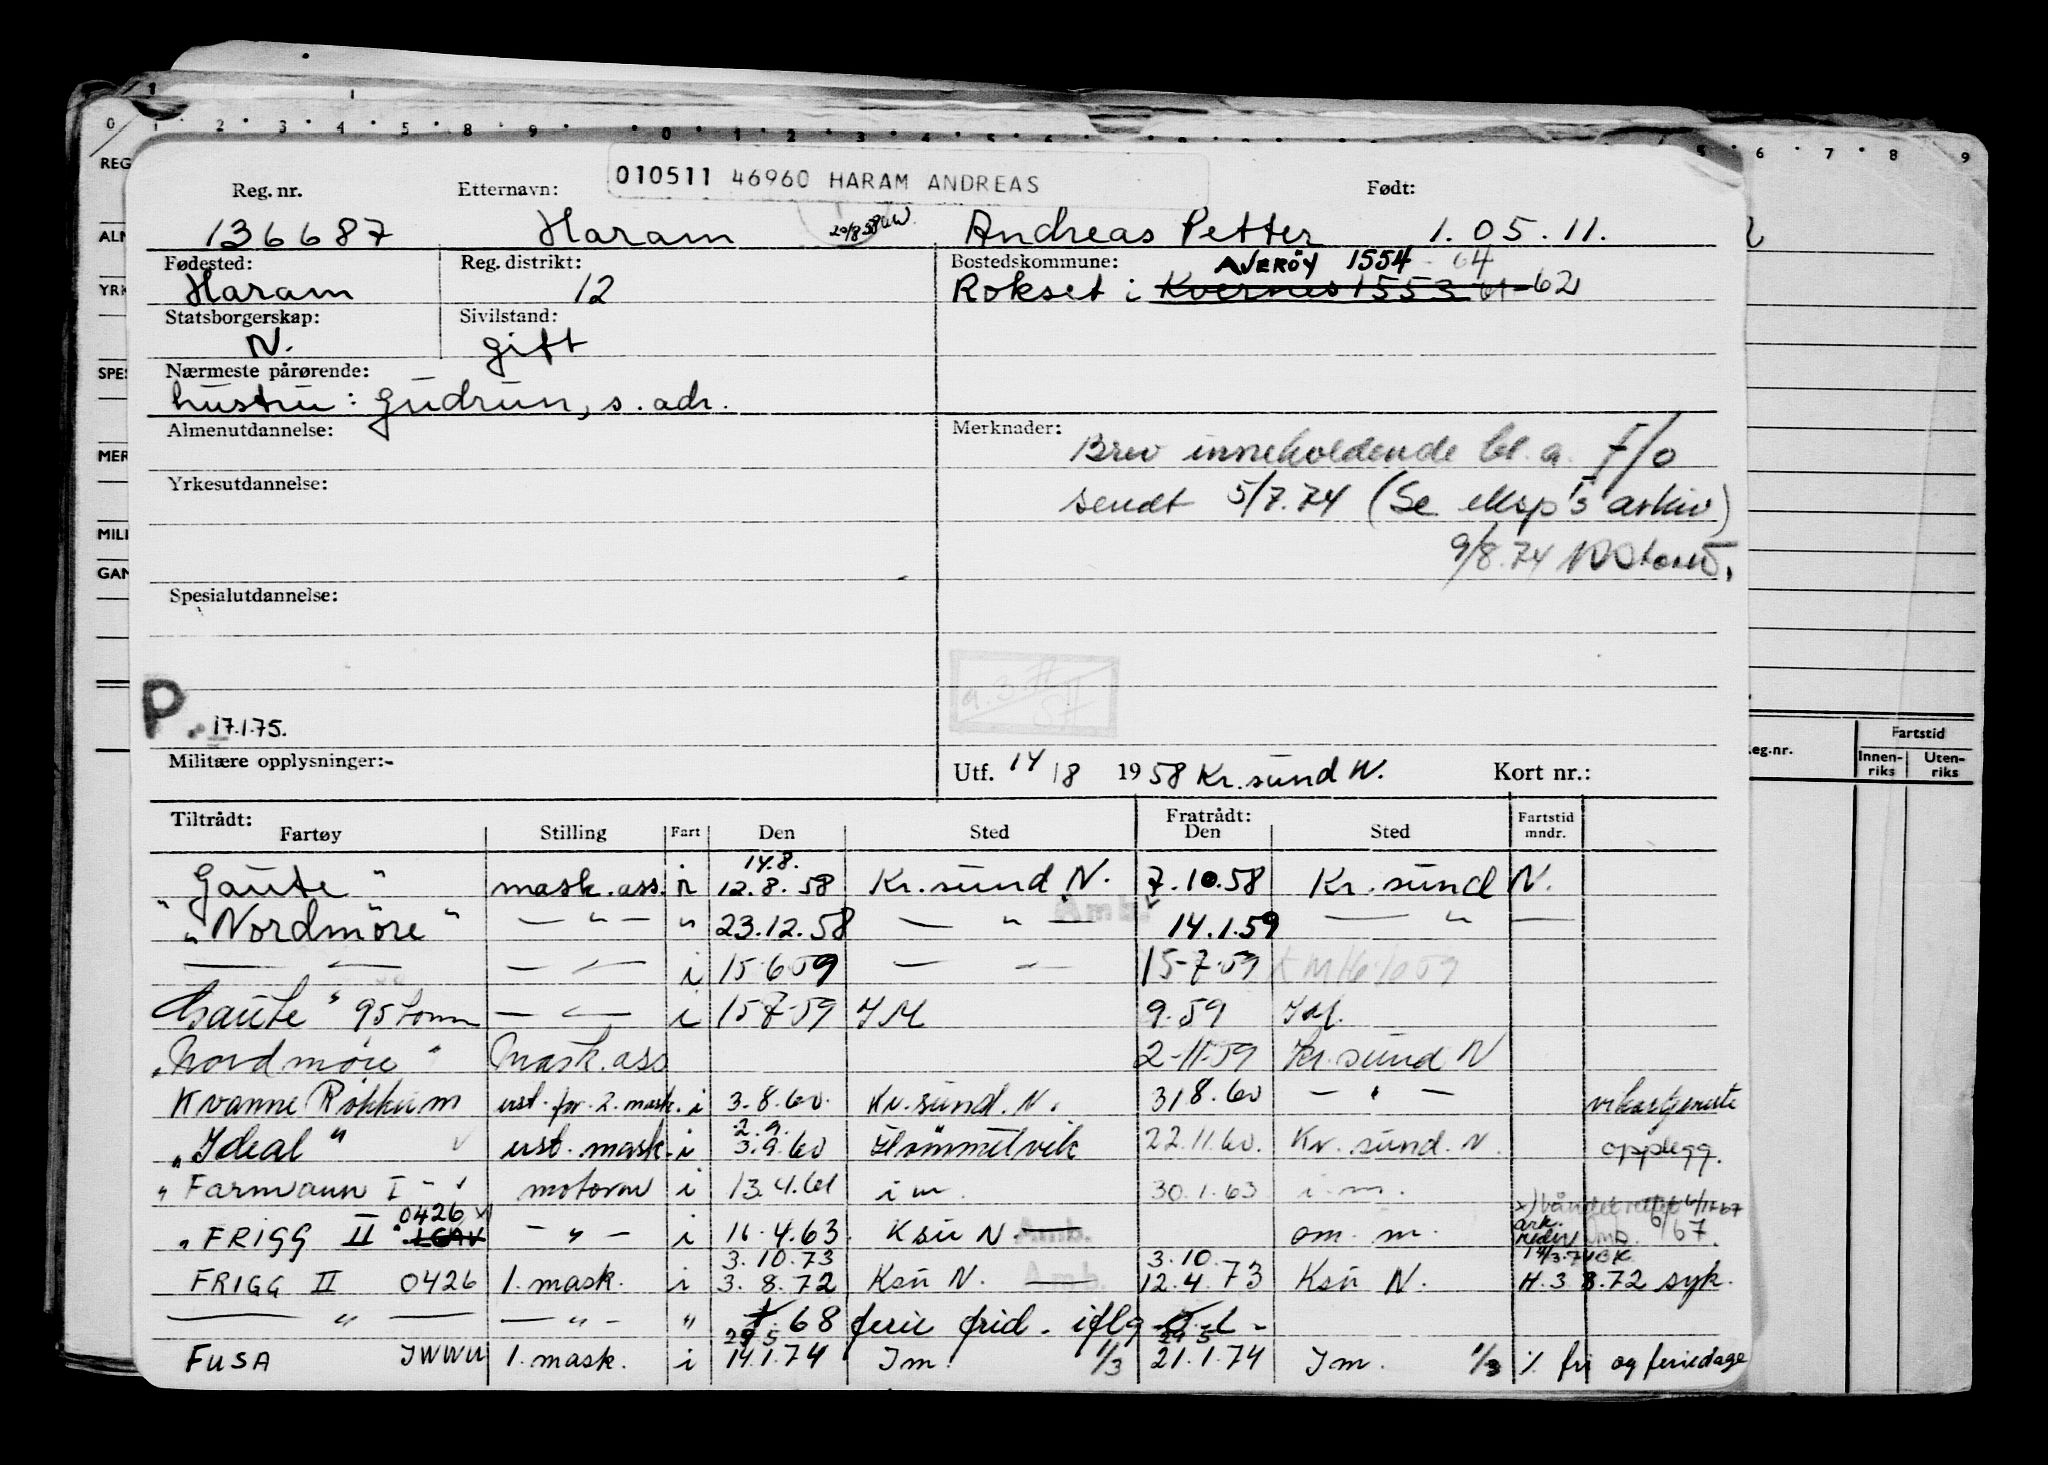 0 1 2 3 4 5 8 9 0 1 2 3 4 5 6 5 6 7 8 9
REG
010511 46960 HARAM ANDREAS
Reg. nr. Etternavn: Født:
136687 Haram 20/8 58 Andreas Petter 1.05.11.
ALM
Fødested: Reg. distrikt: Bostedskommune: AVERÖY 1554 - 64
YRK
Haram 12 Rokset i Kvernes 1553 61-62
Statsborgerskap: Sivilstand:
N. gift
SPES
Nærmeste pårørende:
hustru: Gudrun, s. adr.
Almenutdannelse: Merknader:
MER
Brev inneholdende bl.a. F/o
Yrkesutdannelse:
sendt 5/7.74 (Se eksp's arkiv)
MILI
9/8.74
GAN
Spesialutdannelse:
P.
17.1.75.
Militære opplysninger:-
Utf. 14/8 1958 Kr.sund N. Kort nr.:
eg.nr. Fartstid
Innen-riks Uten-riks
Tiltrådt: Fratrådt: Fartstid mndr.
Fartøy Stilling Fart Den Sted Den Sted
14.8.
"Gaute" mask.ass. i 12.8.58 Kr.sund N. 7.10.58 Kr.sund N.
"Nordmöre" — " — " 23.12.58 — " — Amb. 14.1.59 — " —
— " — — " — i 15.6.59 — " — 15-7-59
"Gaute" 95 tonn — " — i 15-7-59 IM 9.59 IM.
"Nordmöre" Mask.ass 2-11-59 Kr.sund N
Kvanne Røkkum ust. for 2. mask. i 3.8.60. Kr.sund. N. 31/8.60 — " — vikartjeneste
2.9.
"Ideal" ust. mask. i 3.9.60 Hömmelvik 22.11.60. Kr.sund. N. opplegg.
"Farmann I" motorm i 13.4.61 i m. 30.1.63 i.m.
0426 x)
"FRIGG II" LGAV — " — i 16.4.63. Ksu N. Amb. om. m. 6/67.
3.10.73 3.10.
FRIGG II 0426 1. mask. i 3.8.72 Ksu N. Amb. 12.4.73 Ksu N. H.3.8.72 syk.
— " — — " — " 68 ferie frid. iflg
29.5 29.5
FUSA JWWU 1. mask. i 14.1.74 Im. 1/3 21.1.74 Im. 1/3 % fri og feriedage